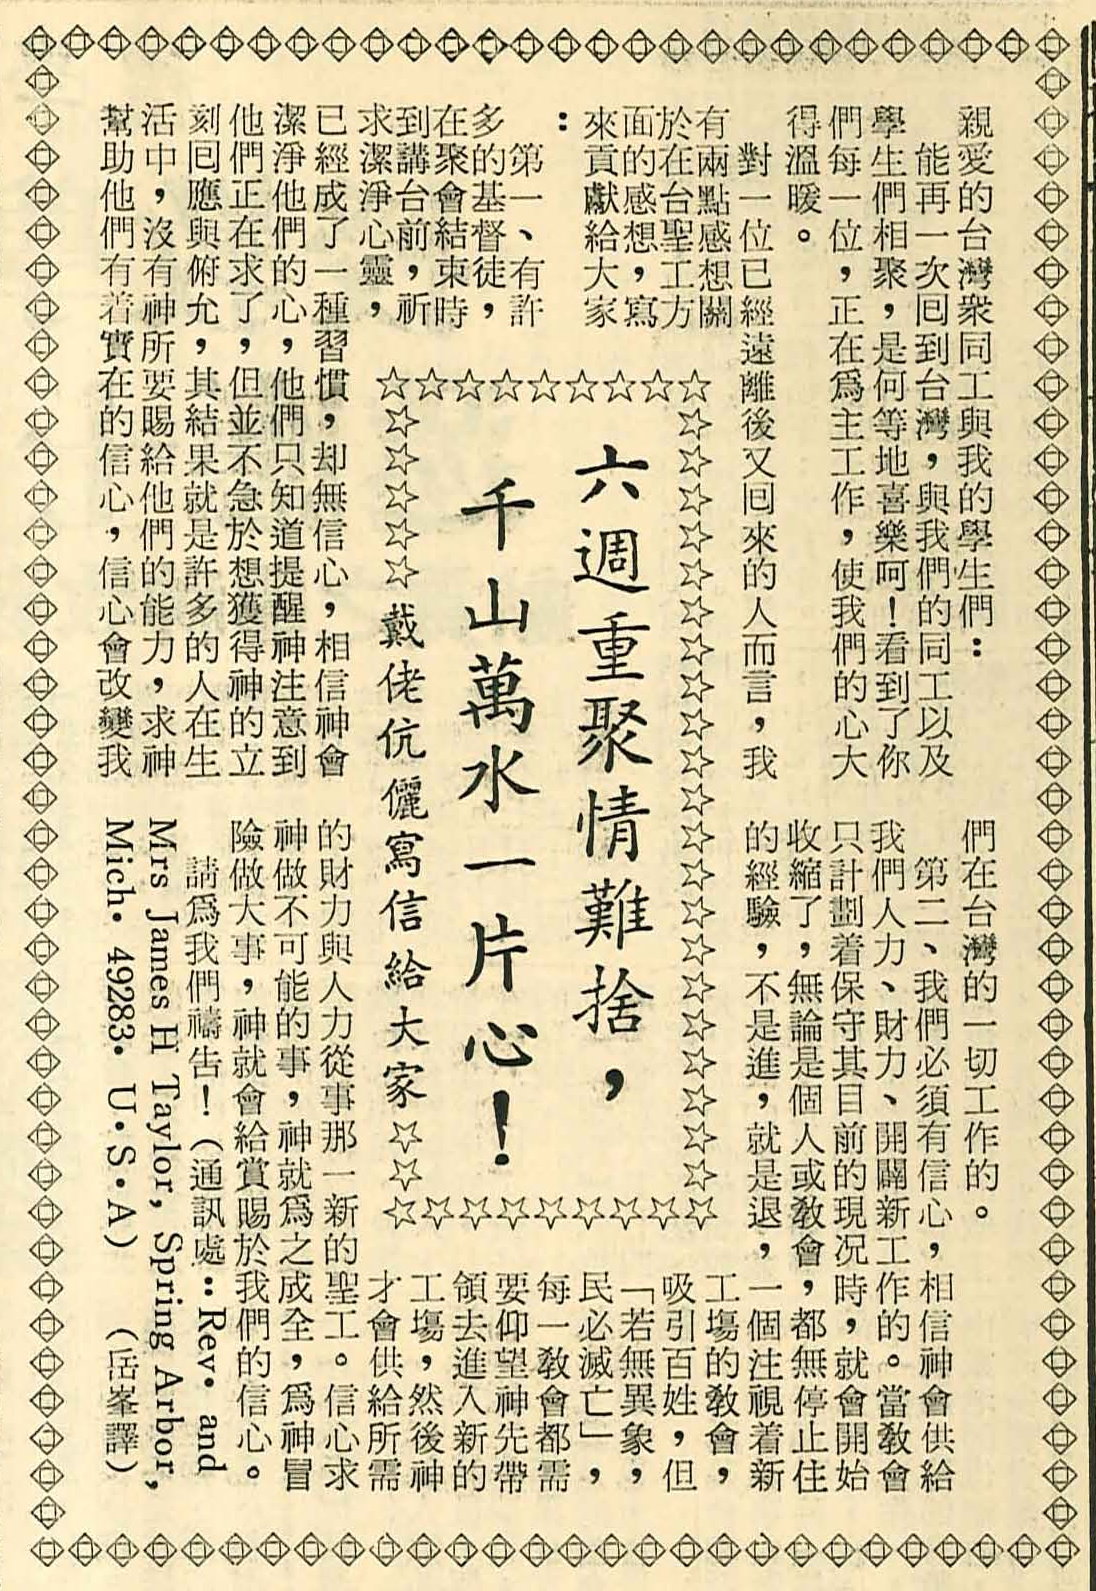 六週重聚情難捨，
千山萬水一片心！
戴佬伉儷寫信給大家
親愛的台灣衆同工與我的學生們：
能再一次回到台灣，與我們的同工以及
學生們相聚，是何等地喜樂呵！看到了你
們每一位，正在爲主工作，使我們的心大
得溫暖。
對一位已經遠離後又回來的人而言，我
有兩點感想關
於在台聖工方
面的感想，寫
來貢獻給大家
：
第一、有許
多的基督徒，
在聚會結束時
到講台前，祈
求潔淨心靈，
已經成了一種習慣，却無信心，相信神會
潔淨他們的心，他們只知道提醒神注意到
他們正在求了，但並不急於想獲得神的立
刻回應與俯允，其結果就是許多的人在生
活中，沒有神所要賜給他們的能力，求神
幫助他們有着實在的信心，信心會改變我
們在台灣的一切工作的。
第二、我們必須有信心，相信神會供給
我們人力、財力、開闢新工作的。當教會
只計劃着保守其目前的現况時，就會開始
收縮了，無論是個人或教會，都無停止住
的經驗，不是進，就是退，一個注視着新
工塲的教會，
吸引百姓，但
「若無異象，
民必滅亡」，
每一教會都需
要仰望神先帶
領去進入新的
工塲，然後神
才會供給所需
的財力與人力從事那一新的聖工。信心求
神做不可能的事，神就爲之成全，爲神冒
險做大事，神就會給賞賜於我們的信心。
請爲我們禱告！（通訊處：Rev. and
Mrs James H Taylor, Spring Arbor,
Mich. 49283. U.S.A）（岳峯譯）